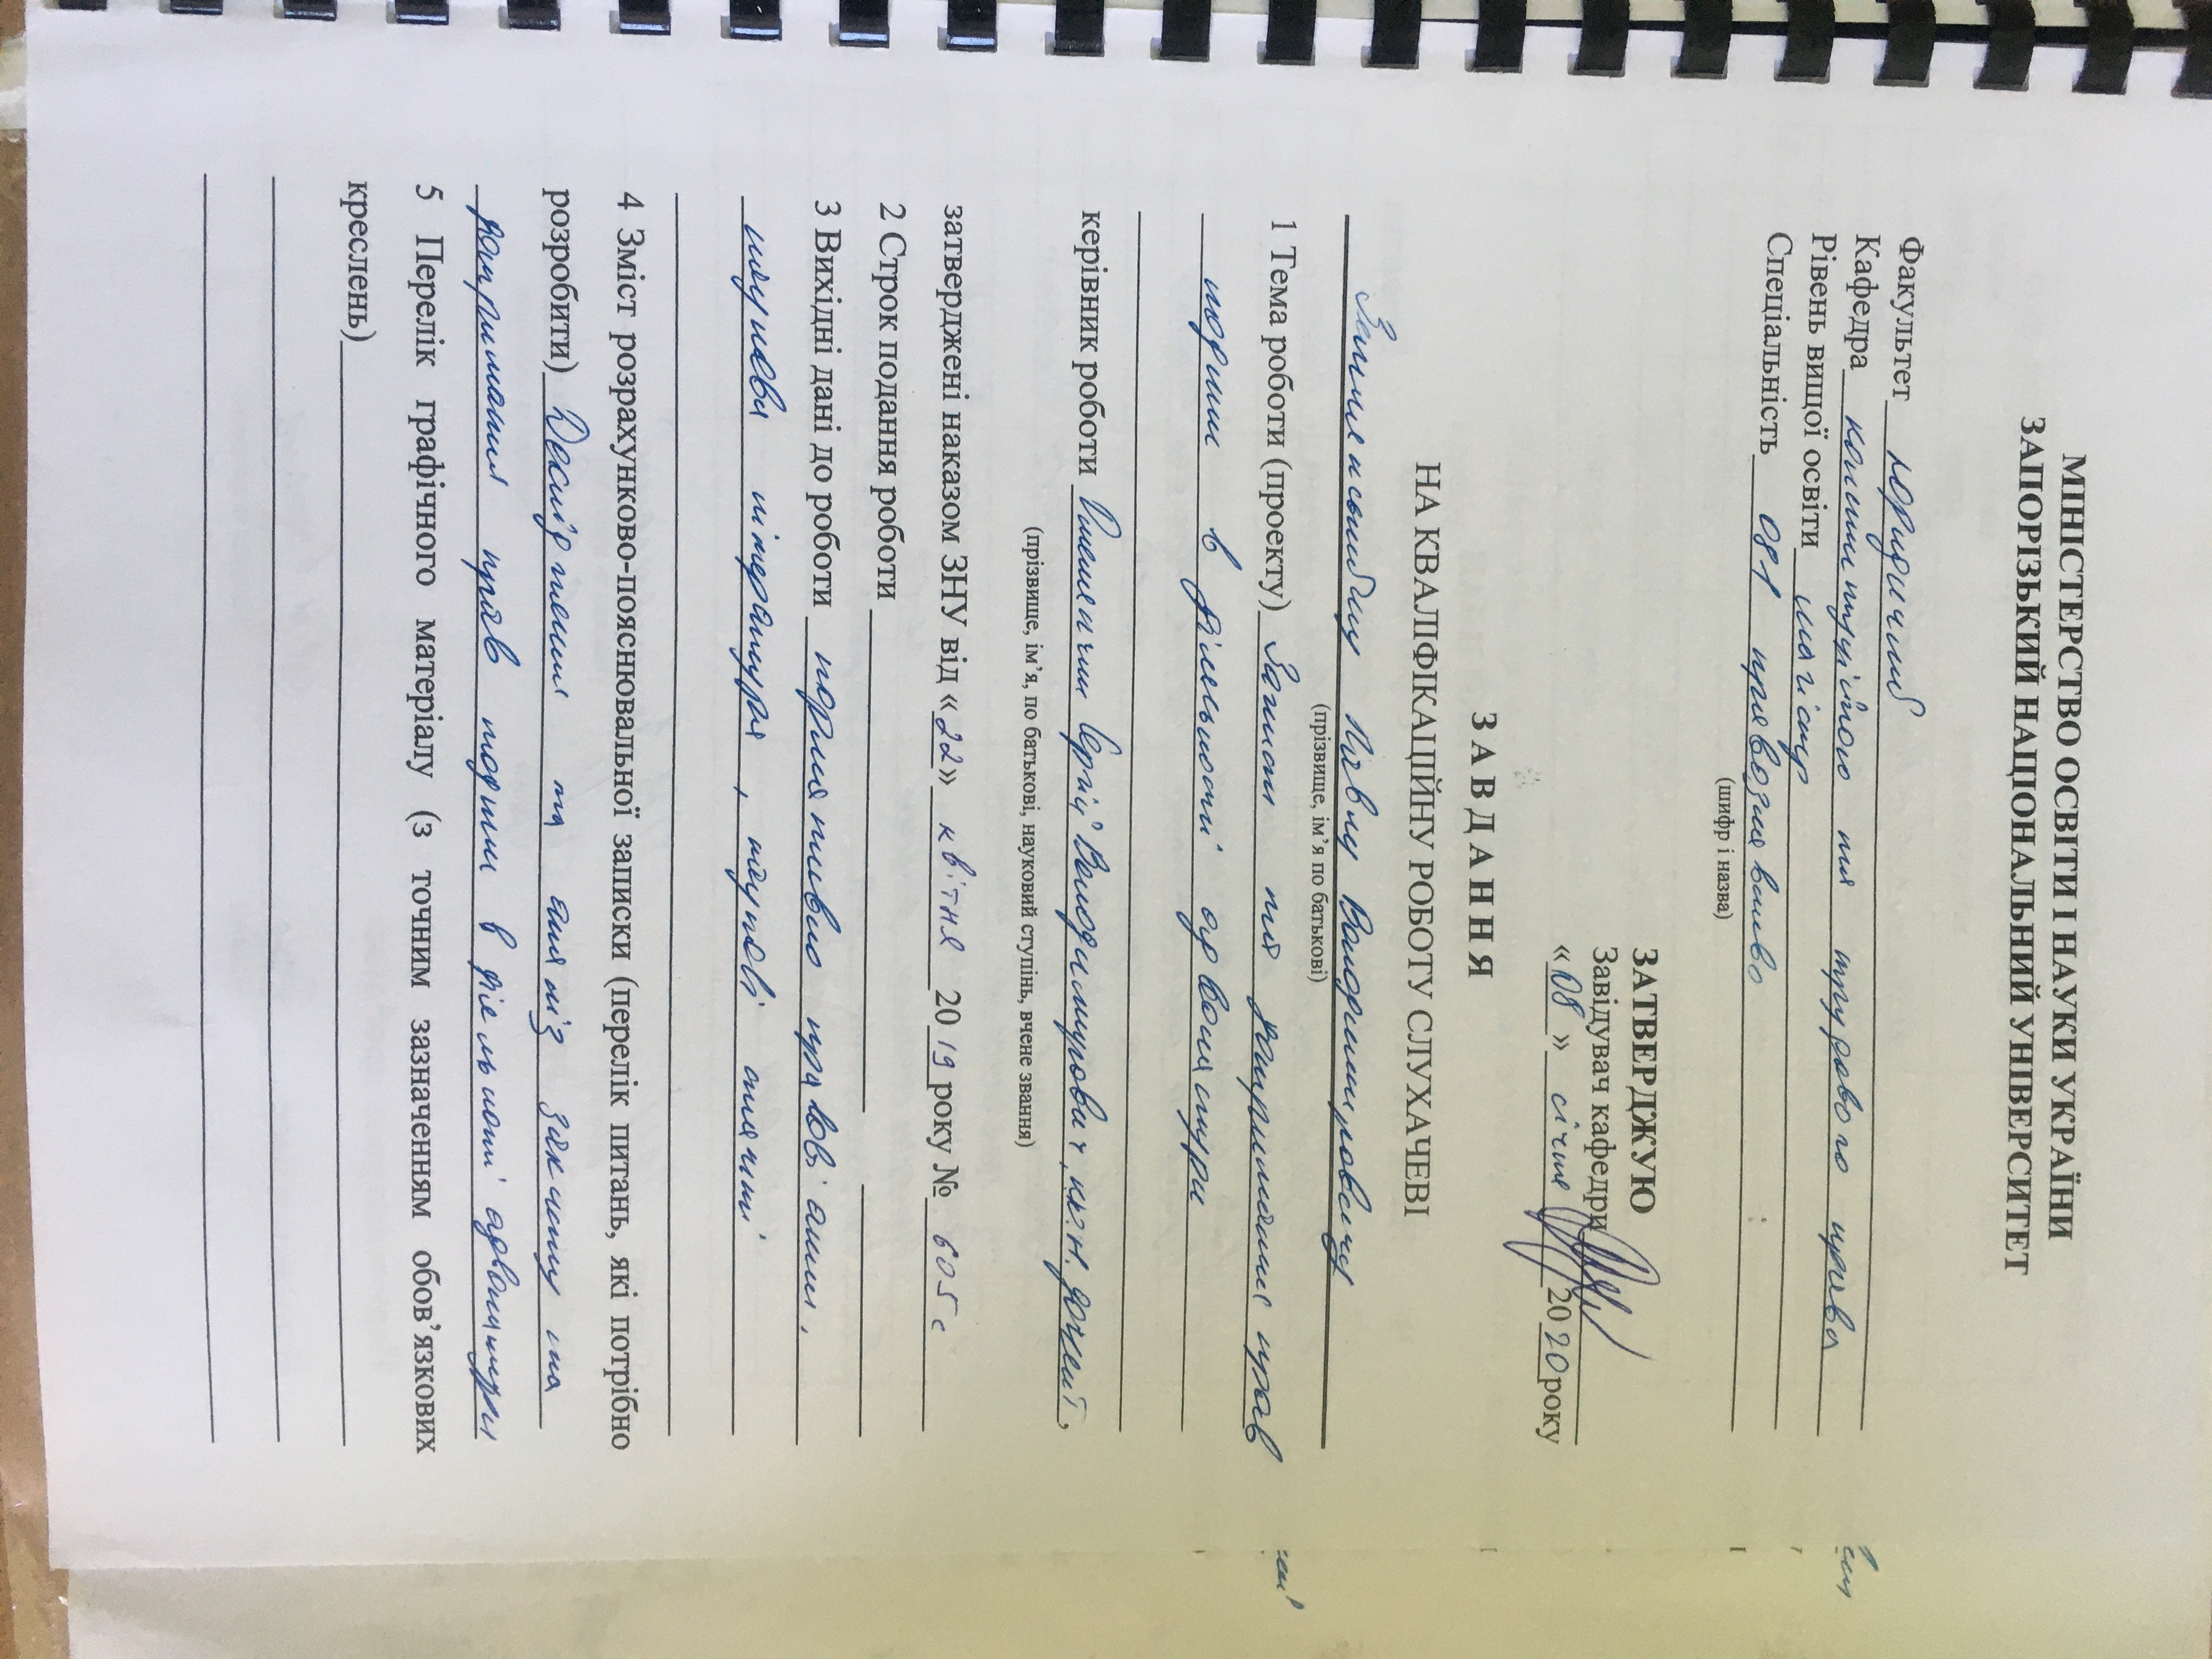 МІНІСТЕРСТВО ОСВІТИ І НАУКИ УКРАЇНИ
ЗАПОРІЗЬКИЙ НАЦІОНАЛЬНИЙ УНІВЕРСИТЕТ
Факультет юридичний
Кафедра конституційного та трудового права
Рівень вищої освіти магістр
Спеціальність 081 правознавство
(шифр і назва)
ЗАТВЕРДЖУЮ
Завідувач кафедри
«08» січня 2020 року
З А В Д А Н Н Я
НА КВАЛІФІКАЦІЙНУ РОБОТУ СЛУХАЧЕВІ
Володимировичу
(прізвище, ім’я по батькові)
1 Тема роботи (проекту) Захист та дотримання прав
людини в діяльності адвокатури
керівник роботи Сергій Володимирович, к.ю.н. доцент,
(прізвище, ім’я, по батькові, науковий ступінь, вчене звання)
затверджені наказом ЗНУ від «22» квітня 2019 року № 605 с
2 Строк подання роботи
3 Вихідні дані до роботи нормативно правові акти,
наукова література, наукові статті
4 Зміст розрахунково-пояснювальної записки (перелік питань, які потрібно
розробити) Дослідження та аналіз захисту та
дотримання прав людини в діяльності адвокатури
5 Перелік графічного матеріалу (з точним зазначенням обов’язкових
креслень)